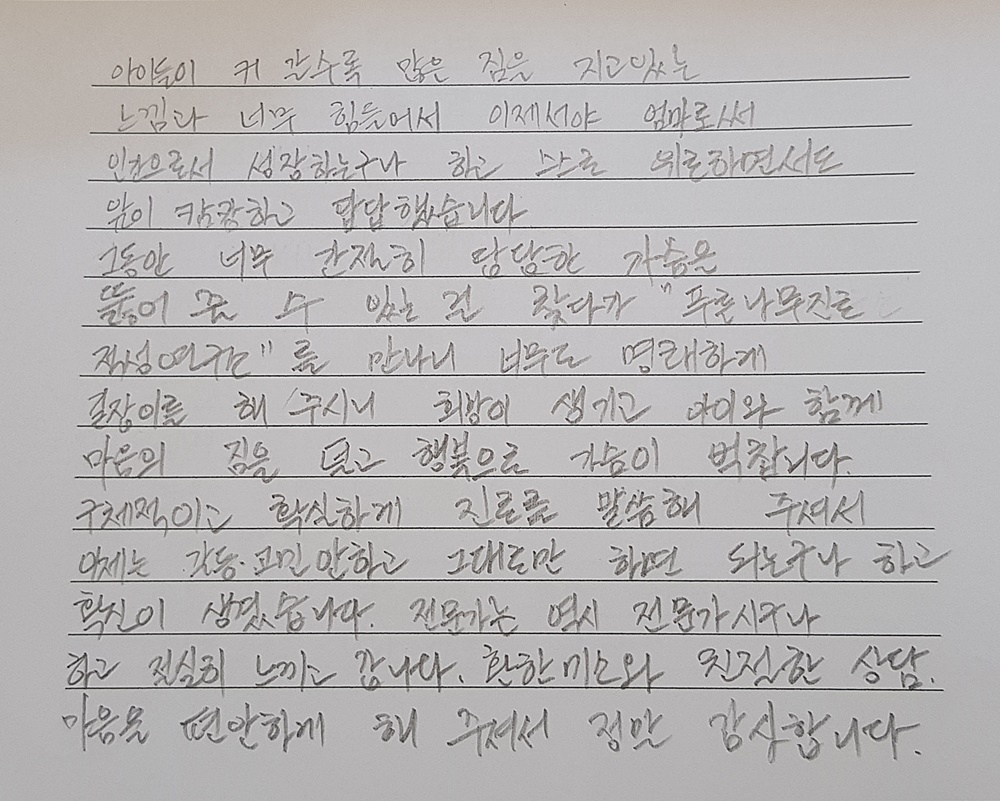 아이들이 커 갈수록 많은 짐을 지고있는
느낌과 너무 힘들어서 이제서야 엄마로써
인간으로서 성장하는구나 하고 스스로 위로하면서도
앞이 캄캄하고 답답했습니다
그동안 너무 간절히 답답한 가슴을
뚫어 줄 수 있는 걸 찾다가 "푸른나무진로
적성연구소"를 만나니 너무도 명쾌하게
길잡이를 해 주시니 희망이 생기고 아이와 함께
마음의 짐을 덜고 행복으로 가슴이 벅찹니다.
구체적이고 확실하게 진로를 말씀해 주셔서
이제는 갈등·고민 안하고 그대로만 하면 되는구나 하고
확신이 생겼습니다. 전문가는 역시 전문가시구나
하고 절실히 느끼고 갑니다. 환한미소와 친절한 상담.
마음을 편안하게 해 주셔서 정말 감사합니다.